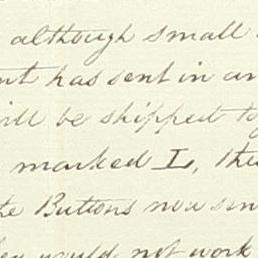 although small
has sent in an
will be shipped to
marked L, the
the Buttons now sen
would not work